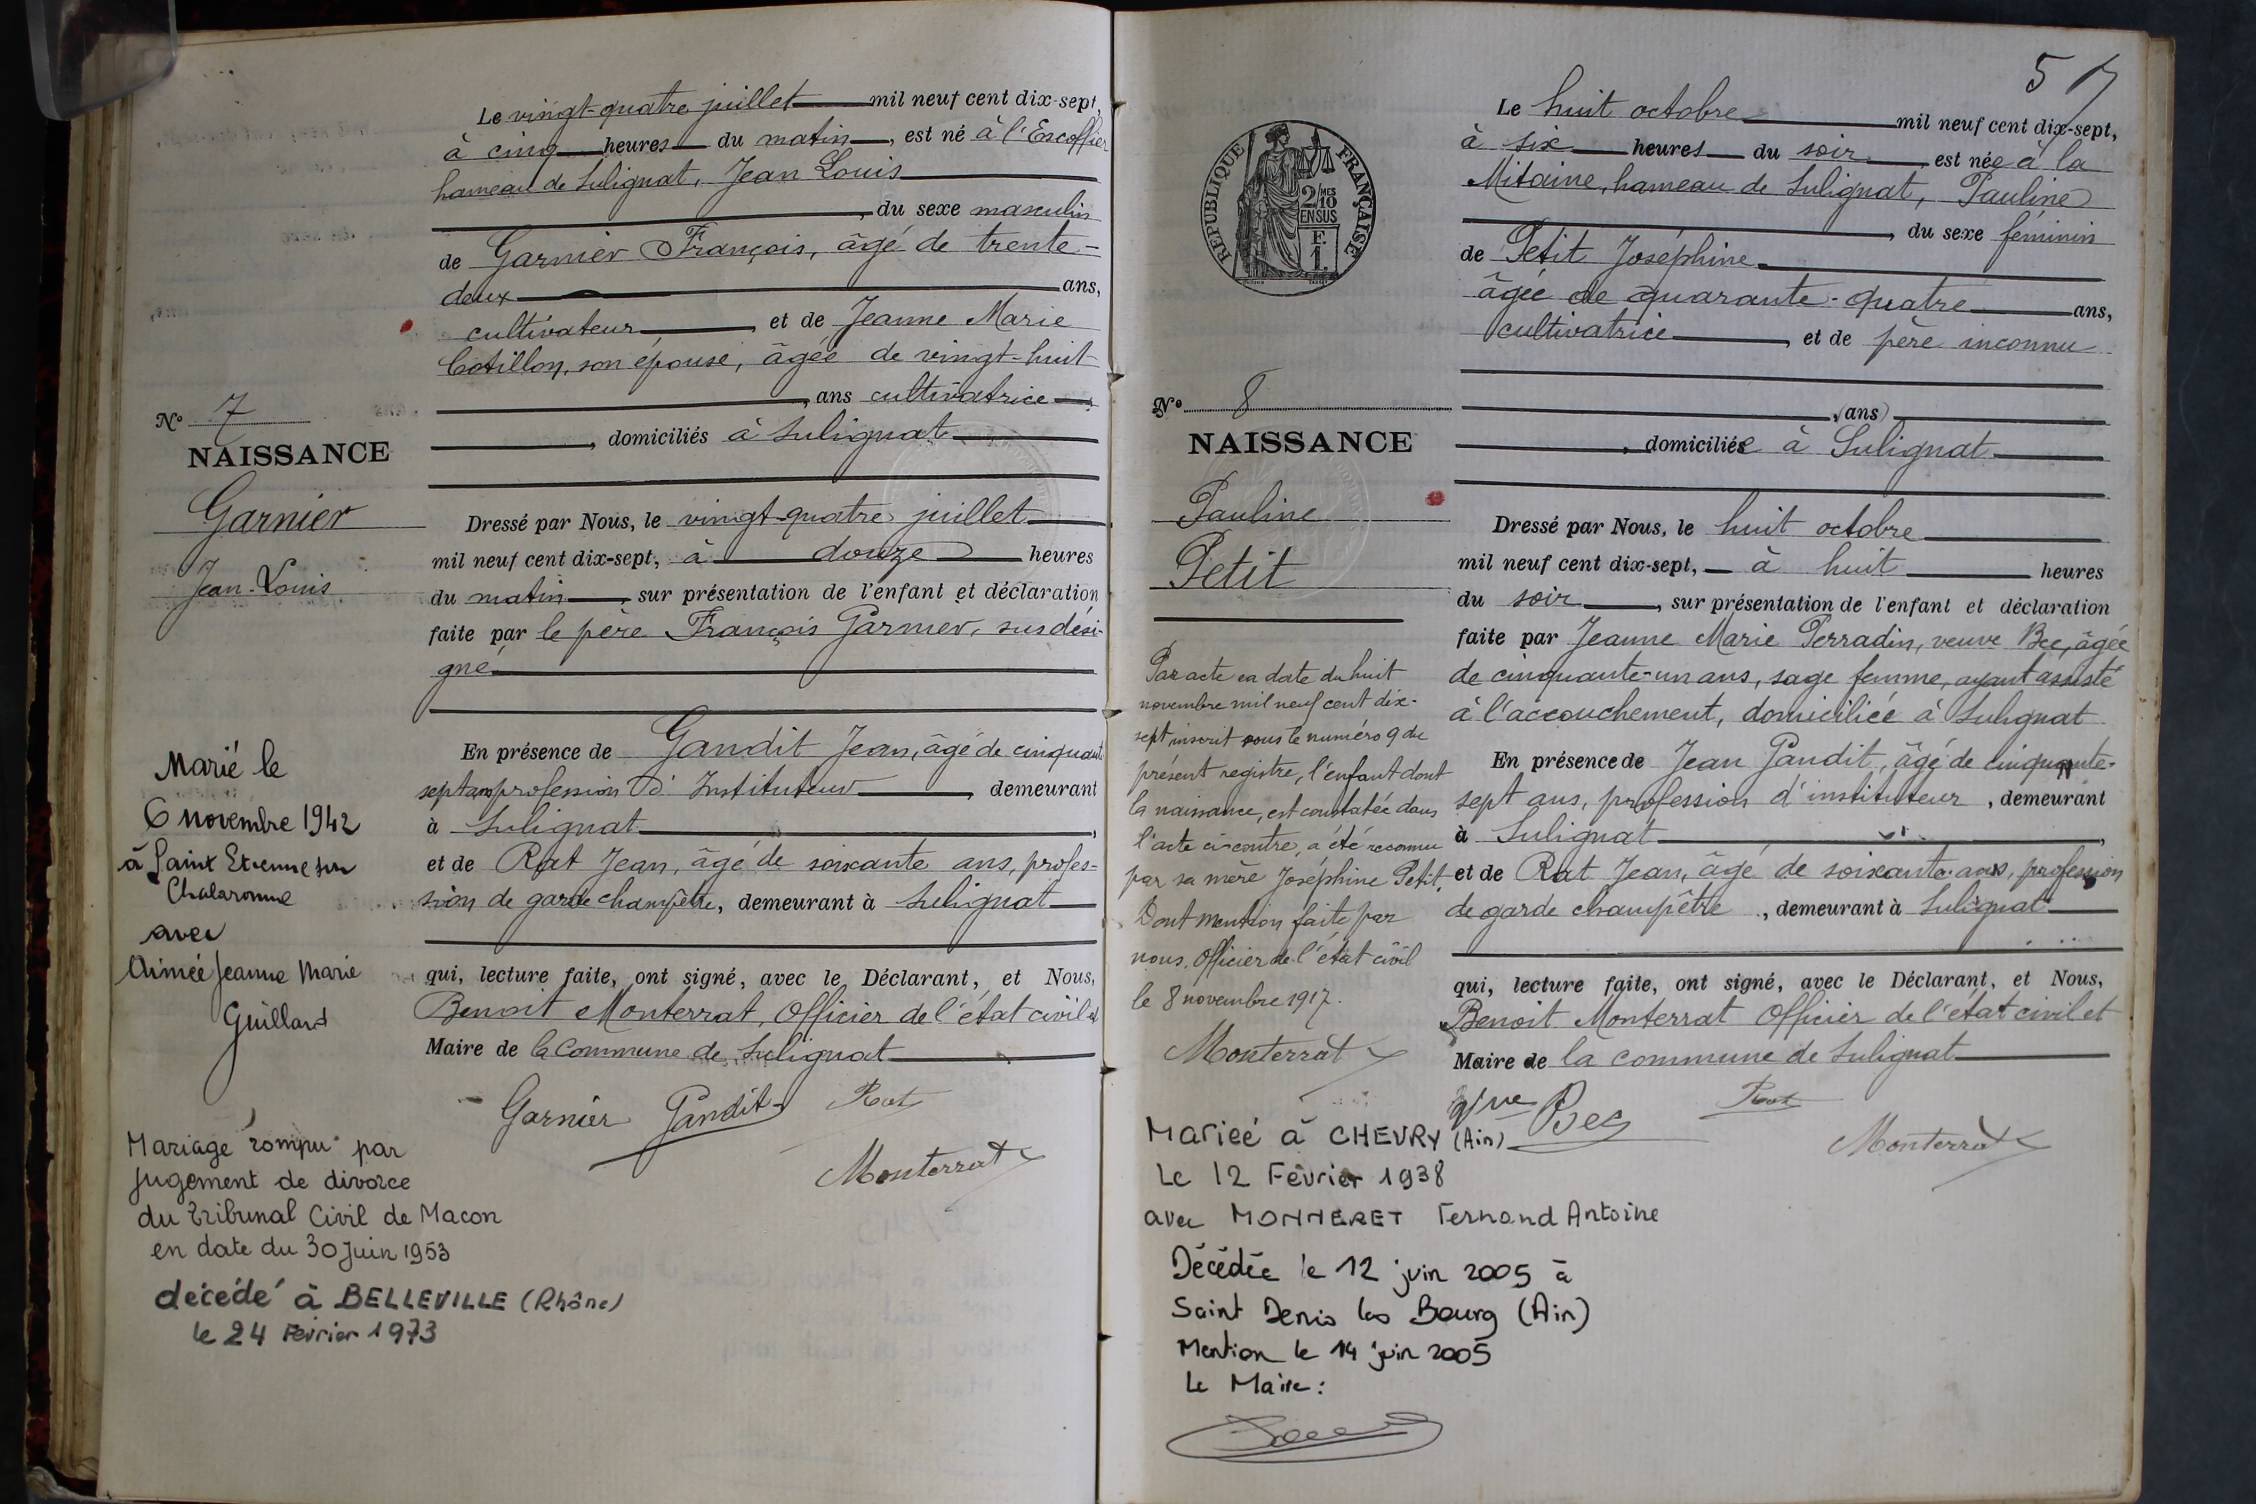 Le vingt-quatre juillet mil neuf cent dix-sept,
à cinq heures du matin, est né à l'Escoffier
hameau de Sulignat, Jean Louis
, du sexe masculin
de Garnier François, âgé de trente-
deux ans,
cultivateur, et de Jeanne Marie
Cotillon, son épouse, âgée de vingt-huit
, ans cultivatrice
, domiciliés à Sulignat
N° 7
NAISSANCE
Garnier
Jean-Louis
Dressé par Nous, le vingt-quatre juillet
mil neuf cent dix-sept, à douze heures
du matin, sur présentation de l'enfant et déclaration
faite par le père François Garnier, sus dési-
gné
En présence de Gandit Jean, âgé de cinquante
sept ans profession d'Instituteur, demeurant
à Sulignat,
et de Rat Jean, âgé de soixante ans, profes-
sion de garde champêtre, demeurant à Sulignat
qui, lecture faite, ont signé, avec le Déclarant, et Nous,
Benoit Monterrat, Officier de l'état civil et
Maire de la Commune de Sulignat
Garnier Gandit Rat
Monterrat
Marié le
6 novembre 1942
à Saint Etienne sur
Chalaronne
avec
Aimée Jeanne Marie
Guillard
Mariage rompu par
jugement de divorce
du Tribunal Civil de Macon
en date du 30 Juin 1953
décédé à BELLEVILLE (Rhône)
le 24 Février 1973
57
REPUBLIQUE FRANÇAISE
2/10 MES
EN SUS
F.
1.
Le huit octobre mil neuf cent dix-sept,
à six heures du soir est née à la
Mitaine, hameau de Sulignat, Pauline
, du sexe féminin
de Petit Joséphine
âgée de quarante-quatre ans,
cultivatrice, et de père inconnu
, (ans)
, domiciliée à Sulignat
N° 8
NAISSANCE
Pauline
Petit
Dressé par Nous, le huit octobre
mil neuf cent dix-sept, à huit heures
du soir, sur présentation de l'enfant et déclaration
faite par Jeanne Marie Perradin, veuve Bec, âgée
de cinquante-un ans, sage femme, ayant assisté
à l'accouchement, domiciliée à Sulignat
En présence de Jean Gandit, âgé de cinquante-
sept ans, profession d'instituteur, demeurant
à Sulignat,
et de Rat Jean, âgé de soixante ans, profession
de garde champêtre, demeurant à Sulignat
qui, lecture faite, ont signé, avec le Déclarant, et Nous,
Benoit Monterrat Officier de l'état civil et
Maire de la commune de Sulignat
Vve Bec Rat
Monterrat
Par acte en date du huit
novembre mil neuf cent dix-
sept inscrit sous le numéro 9 du
présent registre, l'enfant dont
la naissance, est constatée dans
l'acte ci-contre, a été reconnu
par sa mère Joséphine Petit.
Dont mention faite par
nous, Officier de l'état civil
le 8 novembre 1917.
Monterrat
Mariée à CHEVRY (Ain)
Le 12 Février 1938
avec MONNERET Fernand Antoine
Décédée le 12 juin 2005 à
Saint Denis les Bourg (Ain)
Mention le 14 juin 2005
Le Maire :